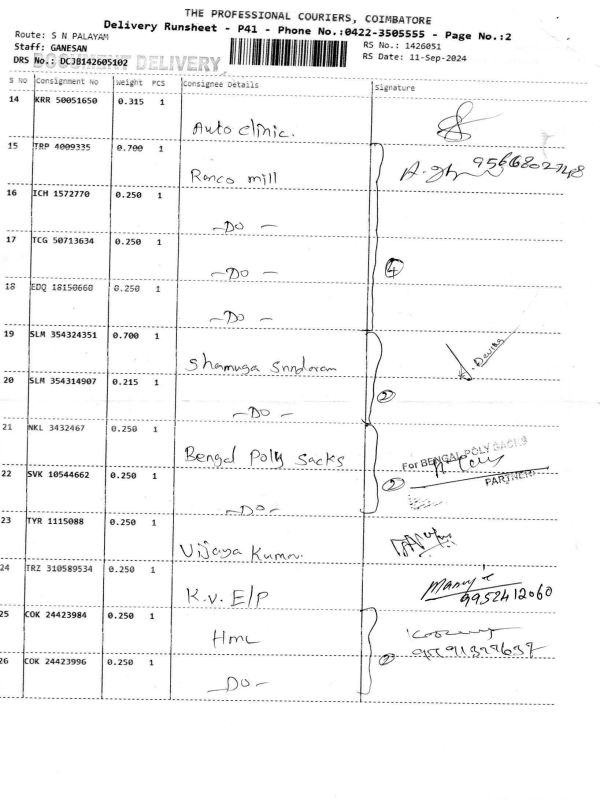 THE PROFESSIONAL COURIERS, COIMBATORE
Delivery Runsheet - P41 - Phone No.:0422-3505555 - Page No.:2
Route: S N PALAYAM
Staff: GANESAN
RS No.: 1426051
DOCUMENT DELIVERY
DRS No.: DCJB142605102
RS Date: 11-Sep-2024
S No Consignment No Weight PCS Consignee Details Signature
14 KRR 50051650 0.315 1
Auto clinic.
15 TRP 4009335 0.700 1
Ranco mill
16 ICH 1572770 0.250 1
-Do-
17 TCG 50713634 0.250 1
-Do- 4
18 EDQ 18150660 0.250 1
-Do-
19 SLM 354324351 0.700 1
Shamuga Sundaram
20 SLM 354314907 0.215 1
-Do- 2
21 NKL 3432467 0.250 1
Bengal Poly Sacks For BENGAL POLY SACKS
22 SVK 10544662 0.250 1 2 PARTNER
-Do-
23 TYR 1115088 0.250 1
Vijaya Kumar.
24 TRZ 310589534 0.250 1
K.V. E/P 9952412060
25 COK 24423984 0.250 1
Hmc
26 COK 24423996 0.250 1 2
Do-